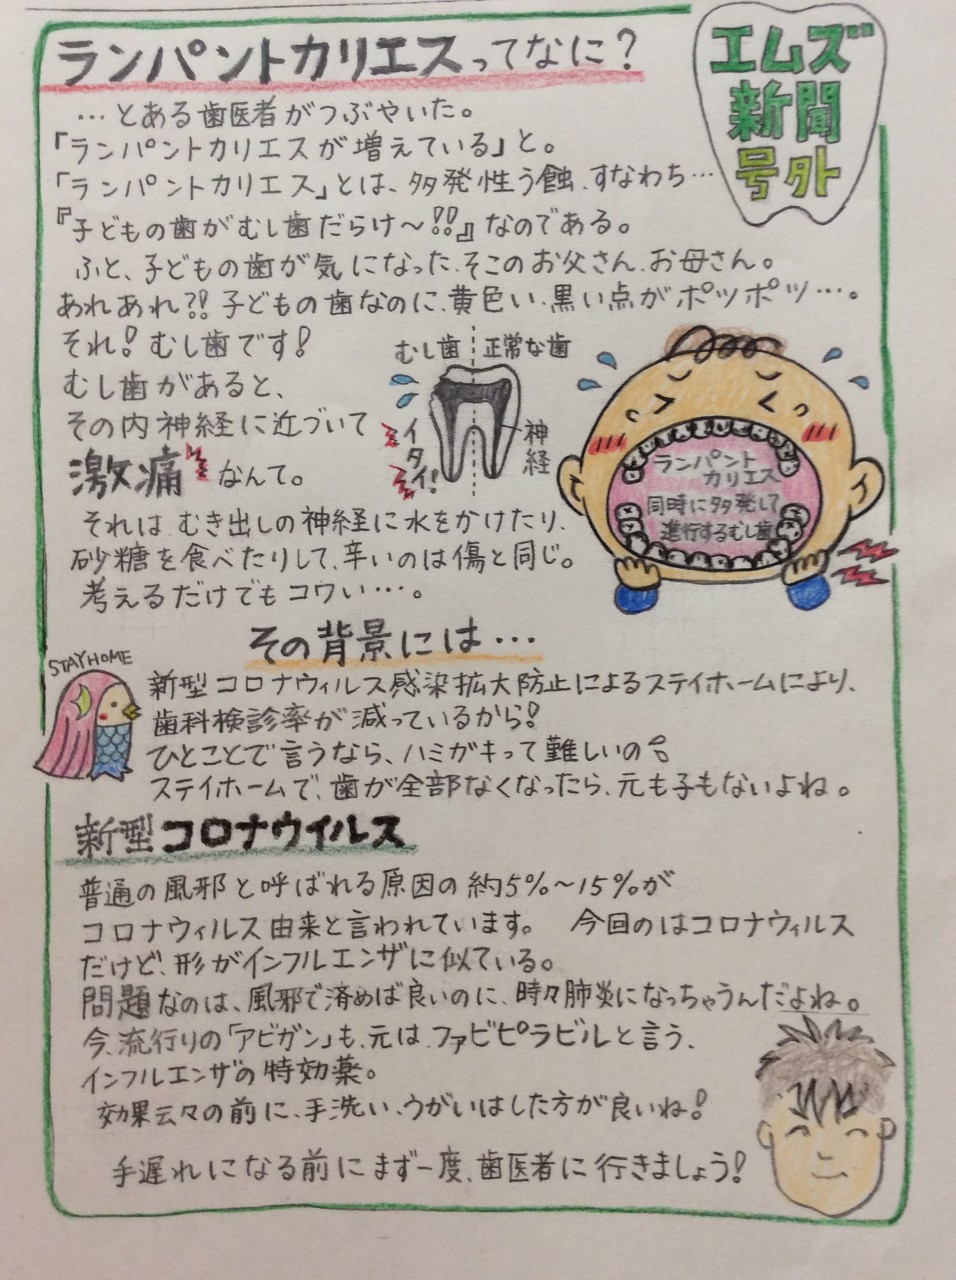 ランパントカリエスってなに?
エムズ
新聞
号外
…とある歯医者がつぶやいた。
「ランパントカリエスが増えている」と。
「ランパントカリエス」とは、多発性う蝕、すなわち…
『子どもの歯がむし歯だらけ〜!!』なのである。
ふと、子どもの歯が気になった、そこのお父さん、お母さん。
あれあれ?!子どもの歯なのに、黄色い、黒い点がポツポツ…。
それ!むし歯です!
むし歯があると、
その内神経に近づいて
激痛なんて。
むし歯 正常な歯
イタイ!
神経
ランパント
カリエス
同時に多発して
進行するむし歯
それは、むき出しの神経に水をかけたり、
砂糖を食べたりして、辛いのは傷と同じ。
考えるだけでもコワい…。
その背景には…
STAY HOME
新型コロナウィルス感染拡大防止によるステイホームにより、
歯科検診率が減っているから!
ひとことで言うなら、ハミガキって難しいの
ステイホームで、歯が全部なくなったら、元も子もないよね。
新型コロナウイルス
普通の風邪と呼ばれる原因の約5%〜15%が
コロナウィルス由来と言われています。 今回のはコロナウィルス
だけど、形がインフルエンザに似ている。
問題なのは、風邪で済めば良いのに、時々肺炎になっちゃうんだよね。
今、流行りの「アビガン」も、元は、ファビピラビルと言う、
インフルエンザの特効薬。
効果云々の前に、手洗い、うがいはした方が良いね!
手遅れになる前にまず一度、歯医者に行きましょう!